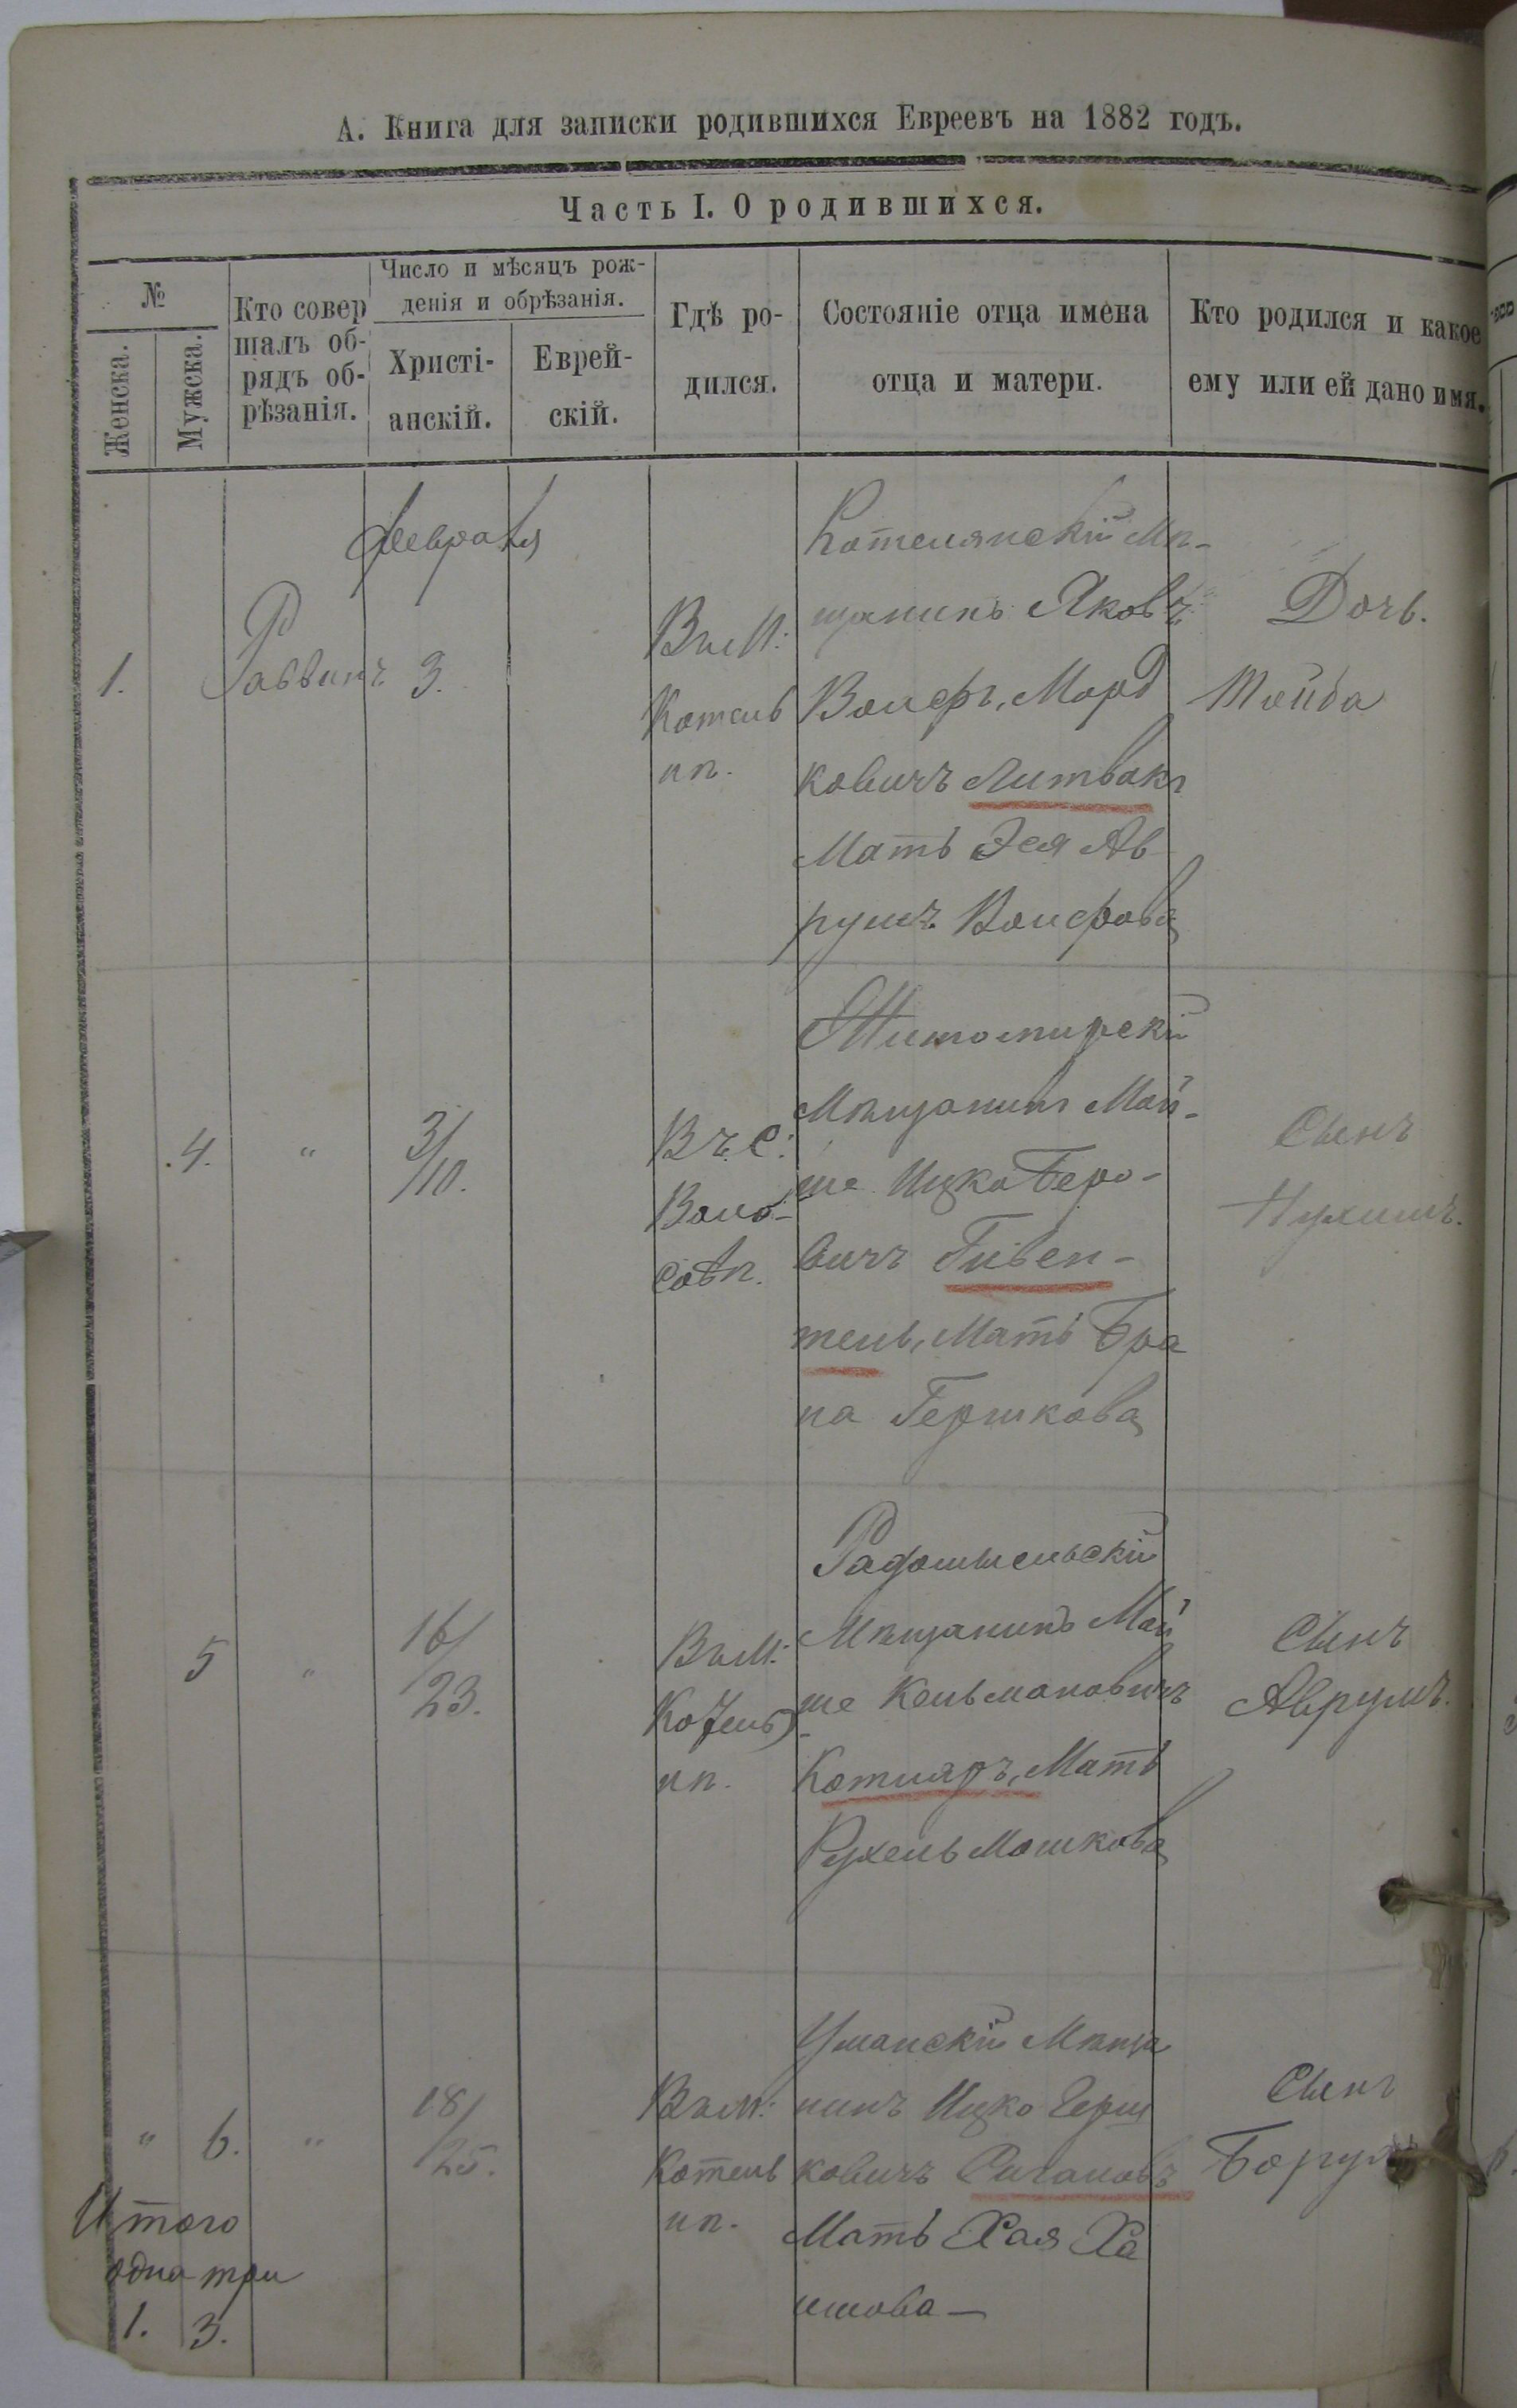 А. Книга для записки родившихся Евреевъ на 1882 годъ.
Часть I. О родившихся.
№
Женска.
Мужска.
Кто совер
шалъ об-
рядъ об-
рѣзанія.
Число и мѣсяцъ рож-
денія и обрѣзанія.
Христі-
анскій.
Еврей-
скій.
Гдѣ ро-
дился.
Состояніе отца имена
отца и матери.
Кто родился и какое
ему или ей дано имя.
Февраля
1.
Раввинъ
3.
Въ М:
Котель
нѣ.
Котелянскій Мѣ-
щанинъ Яковъ
Волфъ, Морд
ковичъ Литвакъ
Мать Эся Ав
румъ Волфова
Дочь.
Тойба
4.
"
3/
10.
Въ С:
Воло-
совѣ.
Житомирскій
Мѣщанинъ Мой-
ше Ицко Беро-
вичъ Гивен-
тель, Мать Бра
на Гершкова
Сынъ
Нухимъ.
5
"
16/
23.
Въ М:
Котель
нѣ.
Радомысльскій
Мѣщанинъ Мой
ше Кельмановичъ
Котляръ, Мать
Рухель Мошкова
Сынъ
Аврумъ.
"
6.
"
18/
25.
Въ М:
Котель
нѣ.
Уманскій Мѣща
нинъ Ицко Герш
ковичъ
Мать Хая Ха
имова —
Сынъ
Борух
Итого
одна три
1. 3.